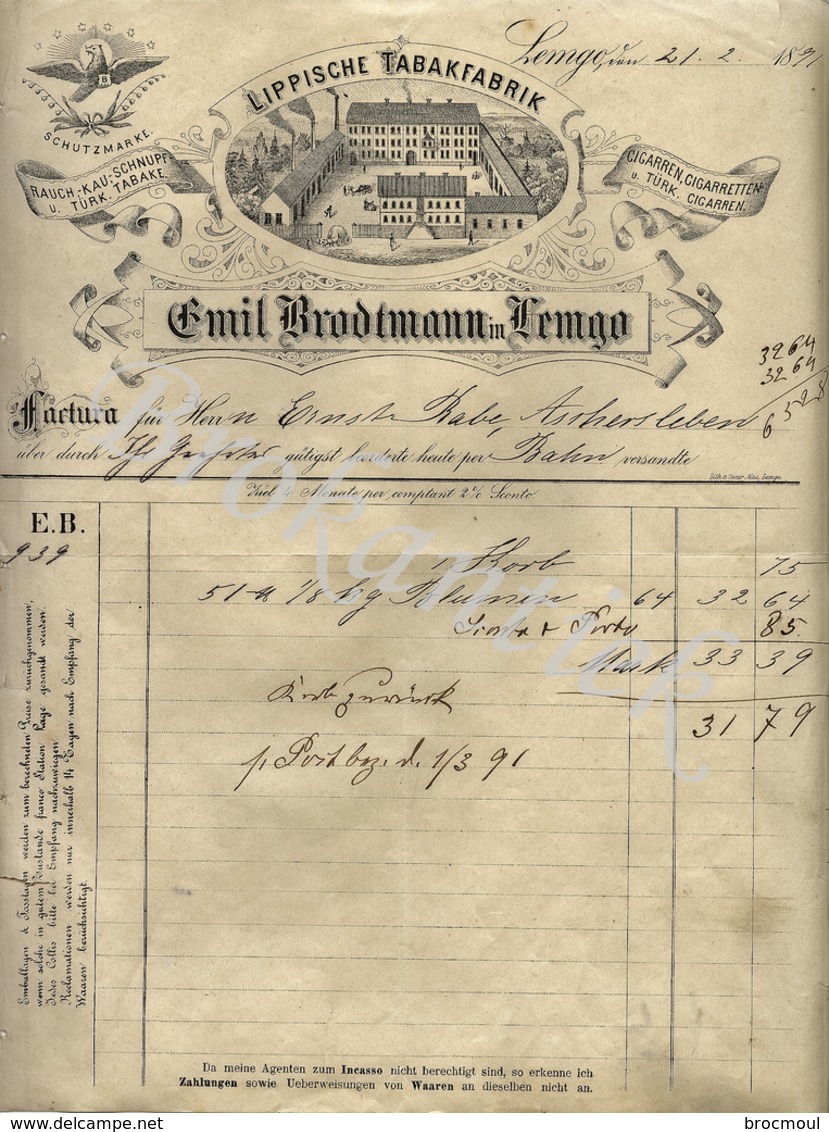 Lemgo, den 21. 2. 1891
LIPPISCHE TABAKFABRIK
B.
SCHUTZMARKE.
RAUCH-, KAU-, SCHNUPF-
U. TÜRK. TABAKE.
CIGARREN, CIGARRETTEN-
U. TÜRK. CIGARREN.
Emil Brodtmann in Lemgo
3264
3264
6528
Factura für Herrn Ernst Rabe, Aschersleben
über durch Ihr Geehrtes gütigst beorderte heute per Bahn versandte
Lith. v. Oscar Mai, Lemgo.
Ziel 4 Monate per comptant 2% Sconto
E.B.
939
1 Korb 75
51 1/8 kg Blumen 64 32 64
Sconto & Porto 85.
Mark 33 39
Korb zurück
31 79
p. Post bez. d. 1/3 91
Emballagen & Fasstagen werden zum berechneten Preise zurückgenommen,
wenn solche in gutem Zustande franco Station Lage gesandt werden.
Jedes Collis bitte bei Empfang nachzuwiegen.
Reclamationen werden nur innerhalb 14 Tagen nach Empfang der
Waaren berücksichtigt.
Da meine Agenten zum Incasso nicht berechtigt sind, so erkenne ich
Zahlungen sowie Ueberweisungen von Waaren an dieselben nicht an.
Brokantiek
delcampe.net
brocmoul